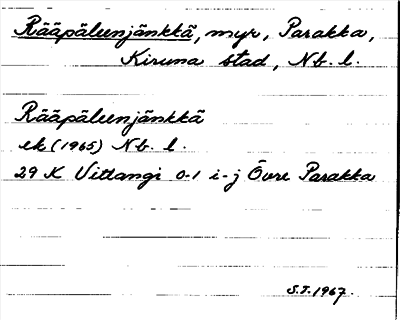 Rääpäleenjänkkä, myr, Parakka,
Kiruna stad, Nb. l.
Rääpäleenjänkkä
ek (1965) Nb. l.
29 K Vittangi 0-1 i-j Övre Parakka
S.J. 1967.